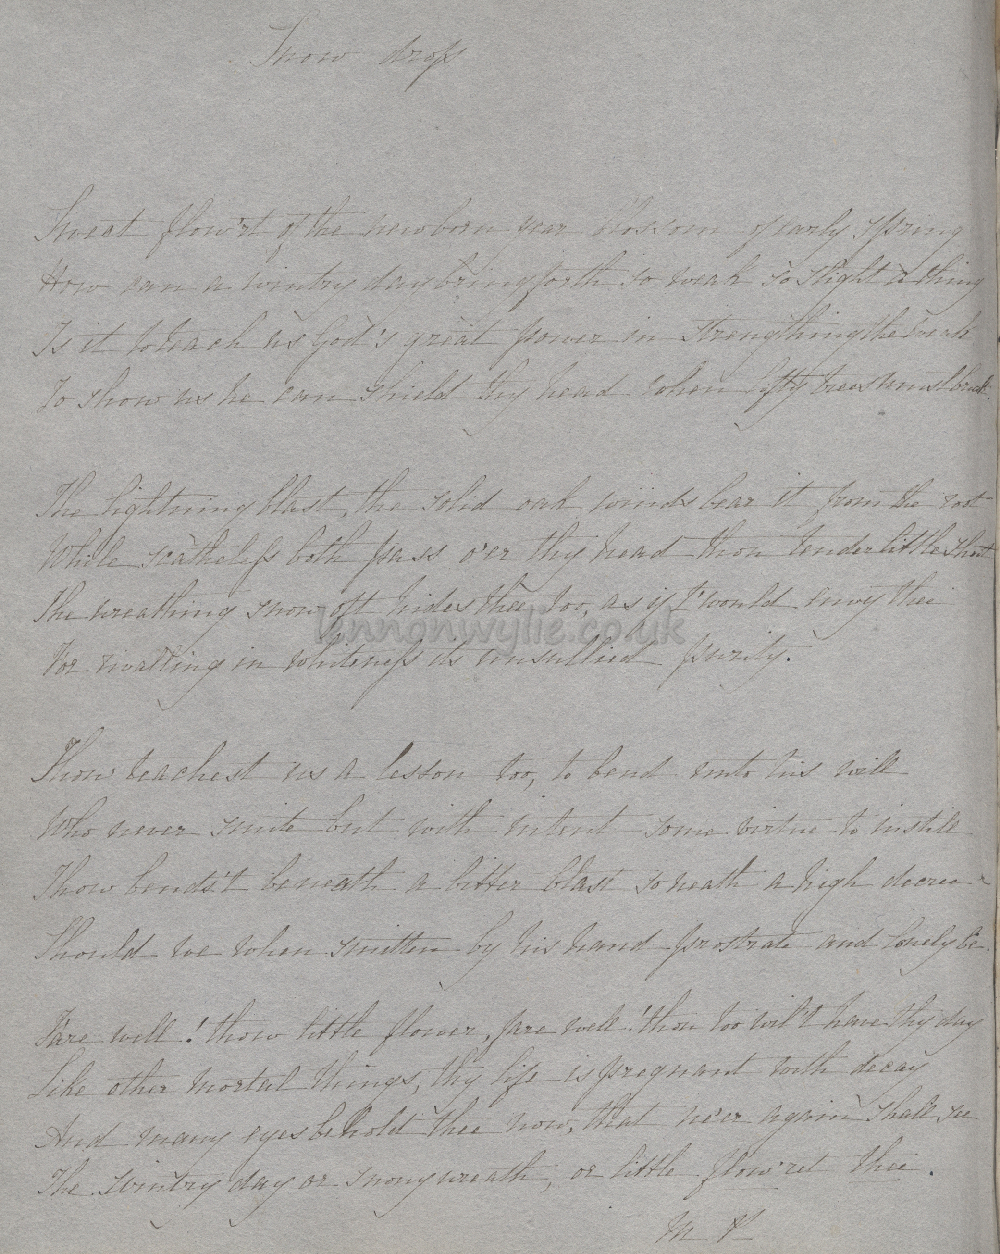 Snow drops
Sweat flow'rt of the newborn year blossom of early spring
How can a wintry day bring forth so weak so slight a thing
Is it to teach us God's great power in strengthing the weak
To show us he can shield thy head when lifty trees must break
The lightning blast, the solid oak winds bear it from the root
While scatheless both pass o'er thy head thou tender little shoot
The wreathing snow oft hides thee too, as if t'would envy thee
For rivalling in whiteness its unsullied purity.
Thou teachest us a lesson too, to bend unto his will
Who never smite but with intent some virtue to instill
Thou bends't beneath a bitter blast so neath a high decree
Should we when smitten by his hand prostrate and lowly be.
Fare well! thou little flower, fare well! thou too wil't have thy day
Like other mortal things, thy life is pregnant with decay
And many eyes behold thee now, that ne'er again shall see
The wintry day or snowy wreath, or little flow'ret thee.
M
lennonwylie.co.uk